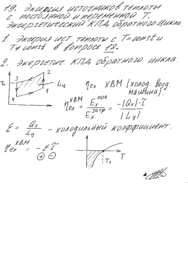 19. Эксергия источников теплоты
с постоянной и переменной T.
Эксергетический КПД обратного цикла.
1. Эксергия ист. теплоты с T=const и
T≠const в вопросе 18.
2. Эксергетич. КПД обратного цикла.
ηex ХВМ (холод. возд.
машина).
T
T₀
3
2
4
1
Lц
ηex ХВМ = Ex пол / Ex затр = -|Q₂|·τ / |Lц|
Ɛ = Q₂ / Lц - холодильный коэффициент.
ηex ХВМ = -Ɛτ
⊕ ⊖
τ
T₀
T